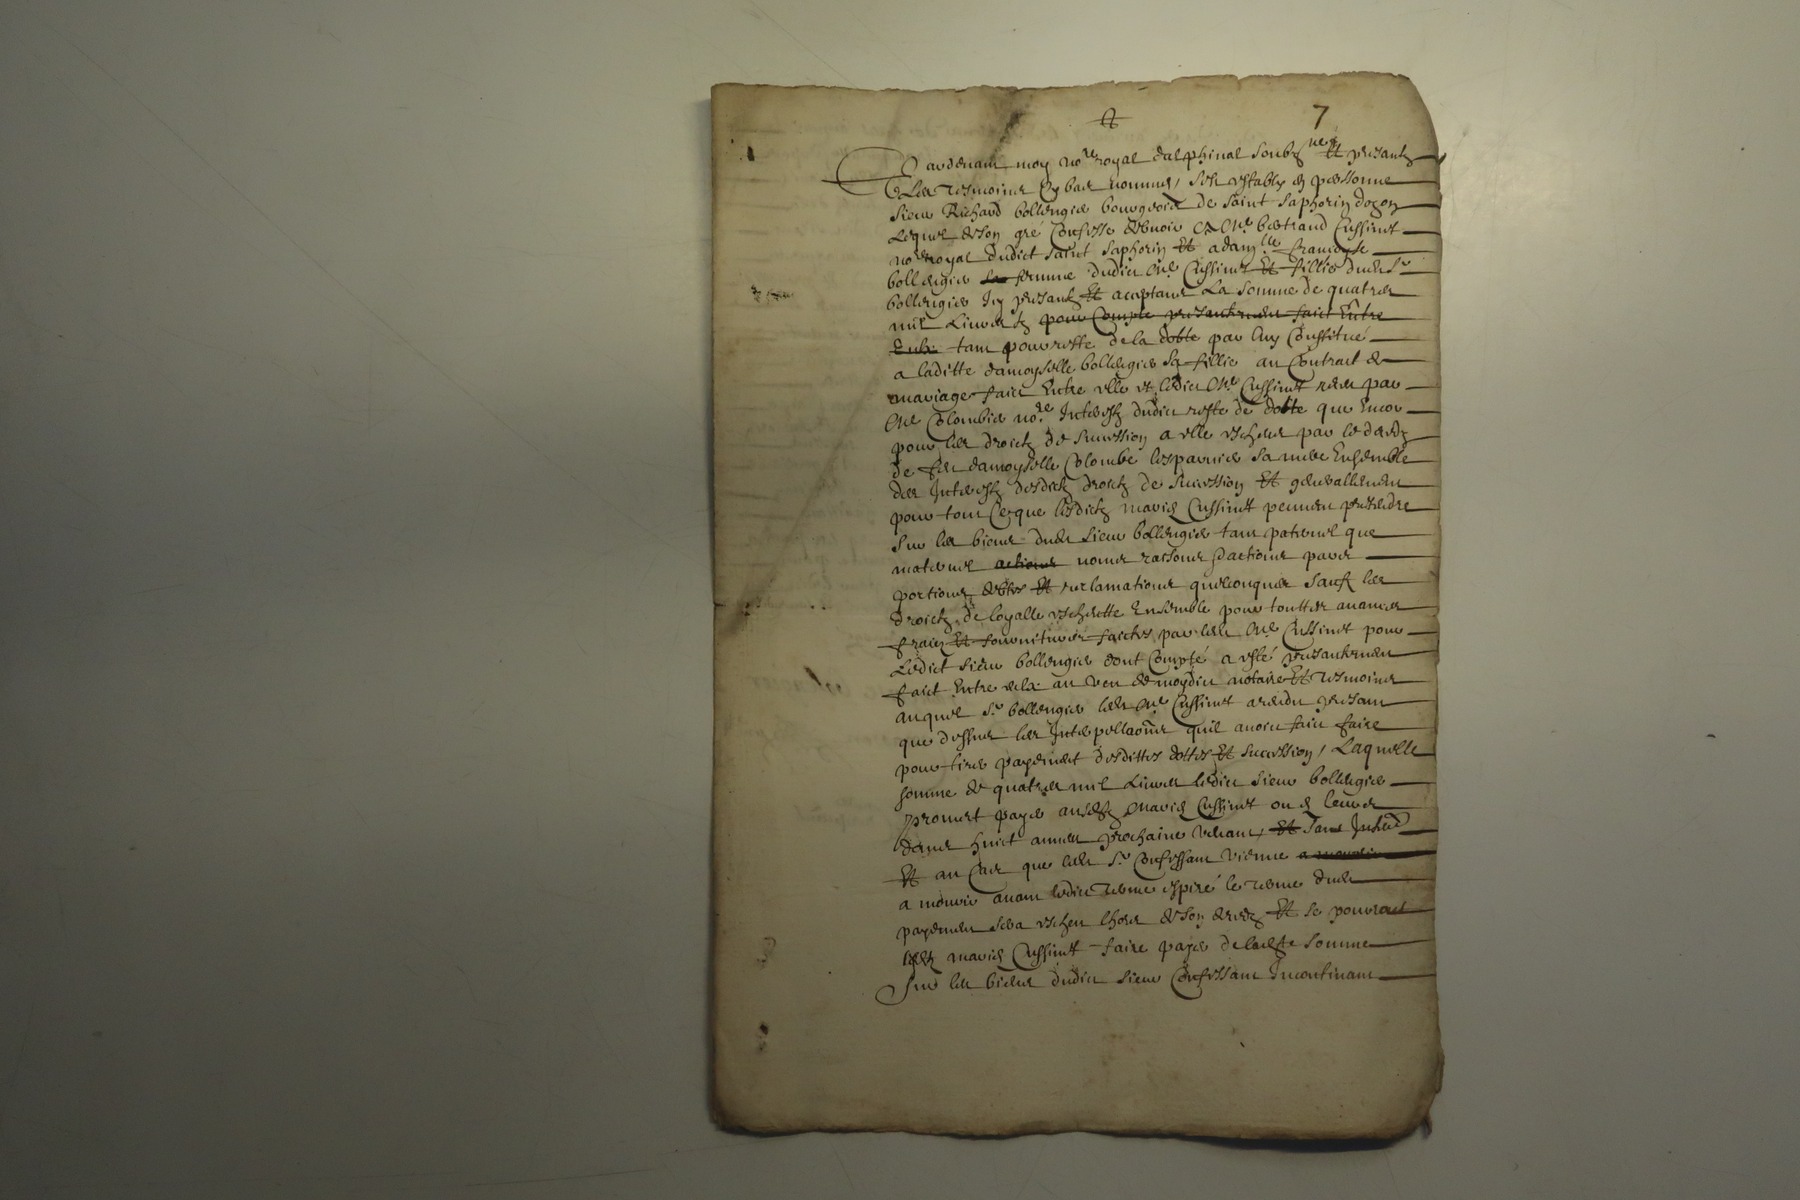 7
Pardevant moy no.re royal dalphinal soubz.ne et presantz
Les tesmoins cy bas nommes, sest estably en personne
sieur Richard bollengier bourgeois de saint saphorin dozon
Lequel de son gré Confesse debvoir a Me bertrand Cussinet
no.re royal dudict saint saphorin Et a dam.lle francoyse
bollengier sa femme dudict Me Cussinet Et fillie dudit Sr
bollengier Icy presantz Et aceptans La somme de quatres
mil Livres tz pour Compte presantement faict Entre
Eulx tant pour reste de la dobte par luy Constitué
a laditte damoyselle bollengier sa fillie au Contract de
mariage faict Entre elle et ledict Me Cussinet receu par
Me Colombier no.re Interestz dudict reste de dotte que Encor
pour les droictz de succession a elle escheus par le decedz
de feu damoyselle Colombe lesparnier sa mere Ensemble
des Interestz desdictz droictz de succession Et generallement
pour tout Ce que lesdictz mariés Cussinet peuvent pretendre
sur les biens dudit sieur bollengier tant paternel que
maternel actions noms raisons dactions parts
portions debtes Et reclamations quelconques sauf les
droictz de loyalle escheutte Ensemble pour touttes avances
frais Et fournitures faictes par ledit Me Cussinet pour
Ledict sieur bollengier dont Compté a esté presantement
faict Entre eulx au veu de moydict notaire Et tesmoins
auquel Sr bollengier ledit Me Cussinet a rendu presant
que dessus les Interpellaons quil avoit faict faire
pour tirer payement desdittes dottes Et succession, Laquelle
somme de quatres mil Livres ledict sieur bollengier
promet payer ausditz mariés Cussinet ou es leurs
dans huict années prochaine venant, Et sans Interestz
Et au Cas que ledit Sr Confessant vienne a mourir
a mourir avant ledict terme expiré le terme dudit
payement sera escheu lhors de son decedz Et se pourront
lesditz mariés Cussinet faire payer de ladicte somme
sur les biens dudict sieur Confessant Incontinant